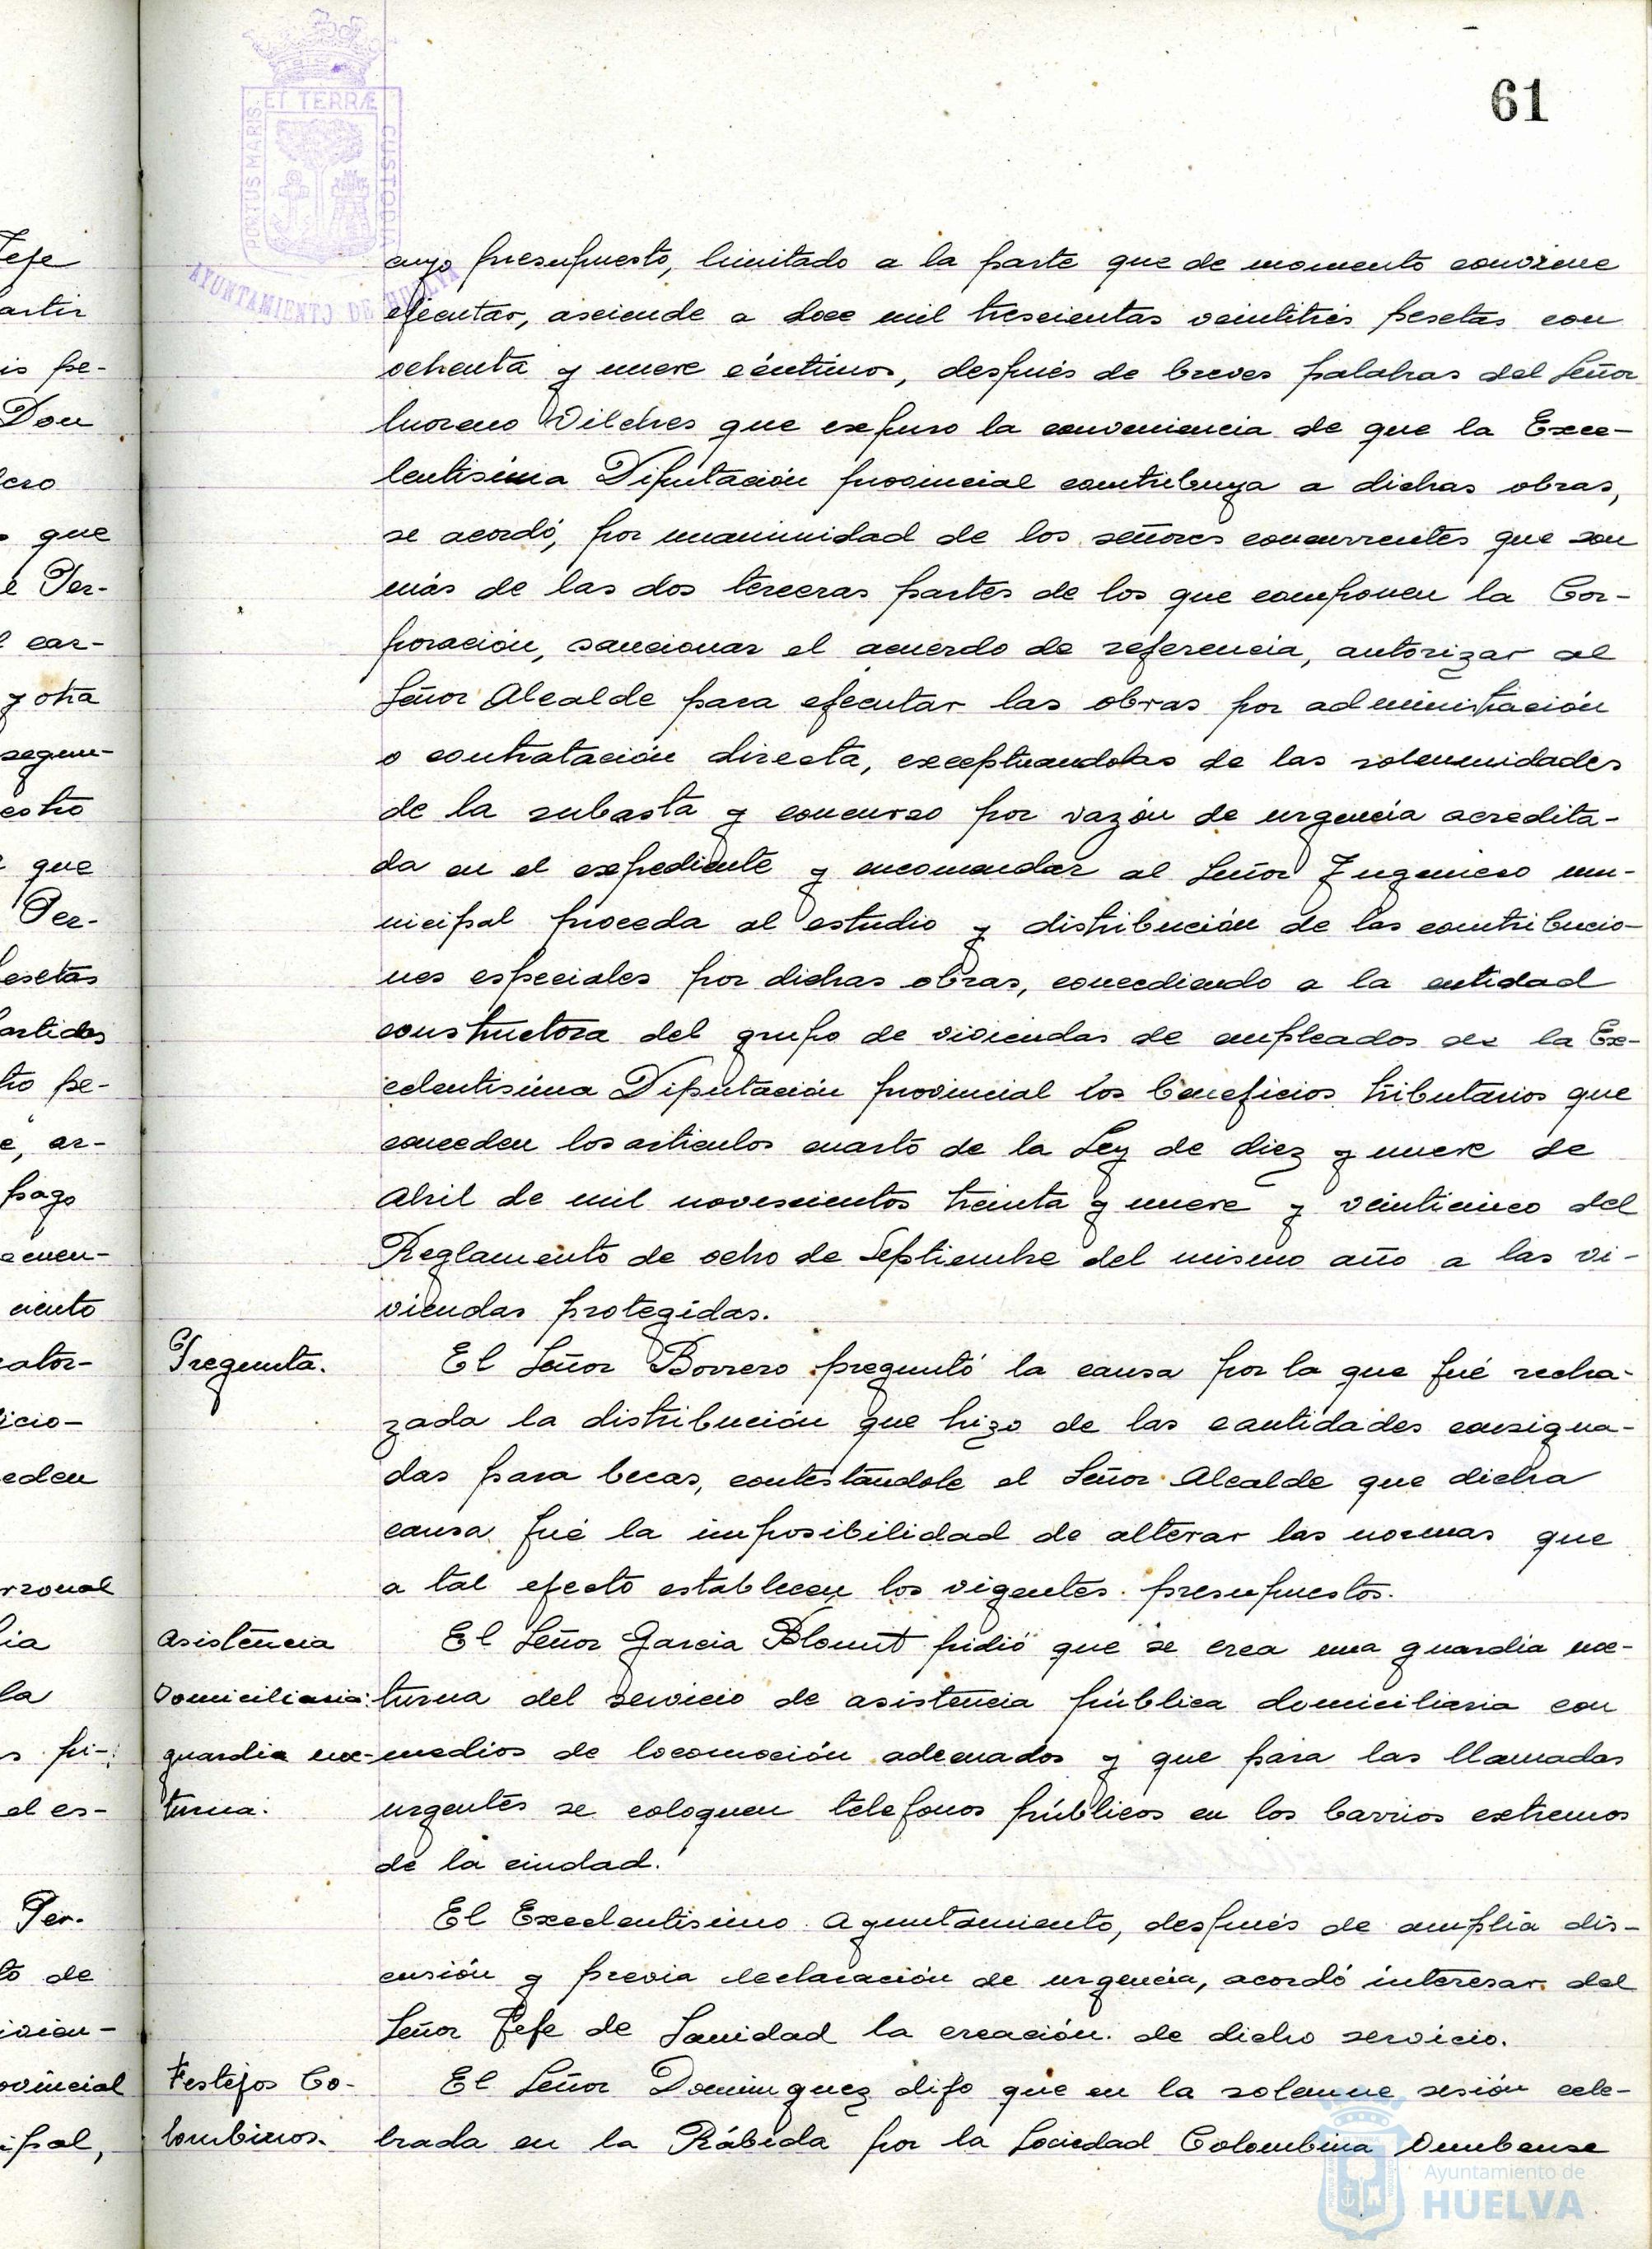 61
PORTUS MARIS ET TERRÆ CUSTODIA
AYUNTAMIENTO DE HUELVA
cuyo presupuesto, limitado a la parte que de momento conviene
ejecutar, asciende a doce mil trescientas veintitrés pesetas con
ochenta y nueve céntimos, después de breves palabras del Señor
Moreno Vilches que expuso la conveniencia de que la Exce-
lentísima Diputación provincial contribuya a dichas obras,
se acordó, por unanimidad de los señores concurrentes que son
más de las dos terceras partes de los que componen la Cor-
poración, sancionar el acuerdo de referencia, autorizar al
Señor Alcalde para ejecutar las obras por administración
o contratación directa, exceptuandolas de las solemnidades
de la subasta y concurso por razón de urgencia acredita-
da en el expediente y encomendar al Señor Ingeniero mu-
nicipal proceda al estudio y distribución de las contribucio-
nes especiales por dichas obras, concediendo a la entidad
constructora del grupo de viviendas de empleados de la Ex-
celentísima Diputación provincial los beneficios tributarios que
conceden los articulos cuarto de la Ley de diez y nueve de
Abril de mil novescientos treinta y nueve y veinticinco del
Reglamento de ocho de Septiembre del mismo año a las vi-
viendas protegidas.
Pregunta.
El Señor Borrero preguntó la causa por la que fué recha-
zada la distribución que hizo de las cantidades consigna-
das para becas, contestándole el Señor Alcalde que dicha
causa fué la imposibilidad de alterar las normas que
a tal efecto establecen los vigentes presupuestos.
Asistencia
Domiciliaria:
guardia noc-
turna.
El Señor Garcia Blount pidió que se crea una guardia noc-
turna del servicio de asistencia pública domiciliaria con
medios de locomoción adecuados y que para las llamadas
urgentes se coloquen telefonos públicos en los barrios extremos
de la ciudad.
El Excelentísimo Ayuntamiento, después de amplia dis-
cusión y previa declaración de urgencia, acordó interesar del
Señor Jefe de Sanidad la creación de dicho servicio.
Festejos Co-
lombinos.
El Señor Dominguez dijo que en la solemne sesión cele-
brada en la Rábida por la Sociedad Colombina Onubense
Ayuntamiento de
HUELVA